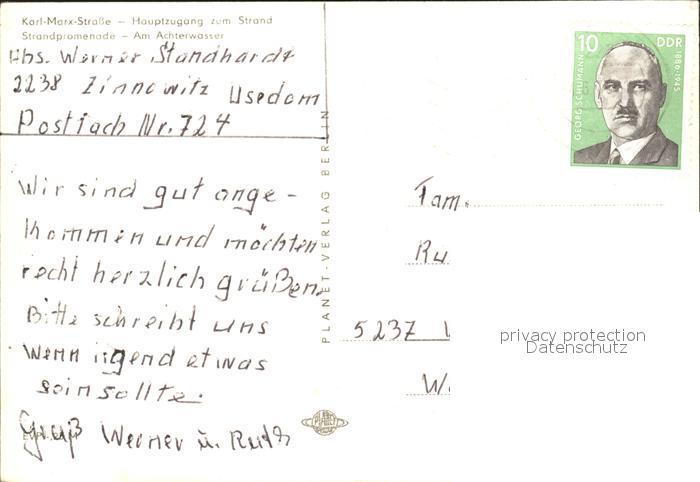 Karl-Marx-Straße – Hauptzugang zum Strand
Strandpromenade – Am Achterwasser
Abs. Werner Standhardt
2238 Zinnowitz Usedom
Postfach Nr. 724
Wir sind gut ange-
kommen und möchten
recht herzlich grüßen.
Bitte schreibt uns
wenn irgend etwas
sein sollte.
Gruß Werner u. Ruth
PLANET-VERLAG BERLIN
10 DDR
GEORG SCHUMANN
1886-1945
Fam.
Ru
5237
W.
privacy protection
Datenschutz
PLANET